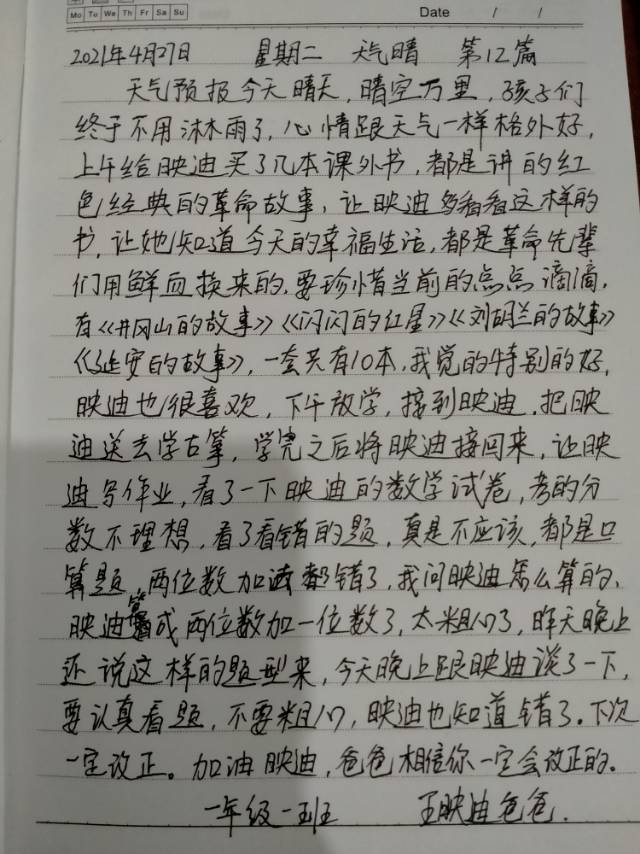 Mo Tu We Th Fr Sa Su
Date / /
2021年4月27日 星期二 天气晴 第12篇
天气预报今天晴天，晴空万里，孩子们
终于不用沐雨了，心情跟天气一样格外好，
上午给映迪买了几本课外书，都是讲的红
色经典的革命故事，让映迪多看看这样的
书，让她知道今天的幸福生活，都是革命先辈
们用鲜血换来的，要珍惜当前的点点滴滴，
有《井冈山的故事》《闪闪的红星》《刘胡兰的故事》
《延安的故事》，一套共有10本，我觉的特别的好，
映迪也很喜欢，下午放学，接到映迪，把映
迪送去学古筝，学完之后将映迪接回来，让映
迪写作业，看了一下映迪的数学试卷，考的分
数不理想，看了看错的题，真是不应该，都是口
算题，两位数加法都错了，我问映迪怎么算的，
映迪算成两位数加一位数了，太粗心了，昨天晚上
还说这样的题型来，今天晚上跟映迪谈了一下，
要认真看题，不要粗心，映迪也知道错了。下次
一定改正。加油映迪，爸爸相信你一定会改正的。
一年级一班 王映迪爸爸．